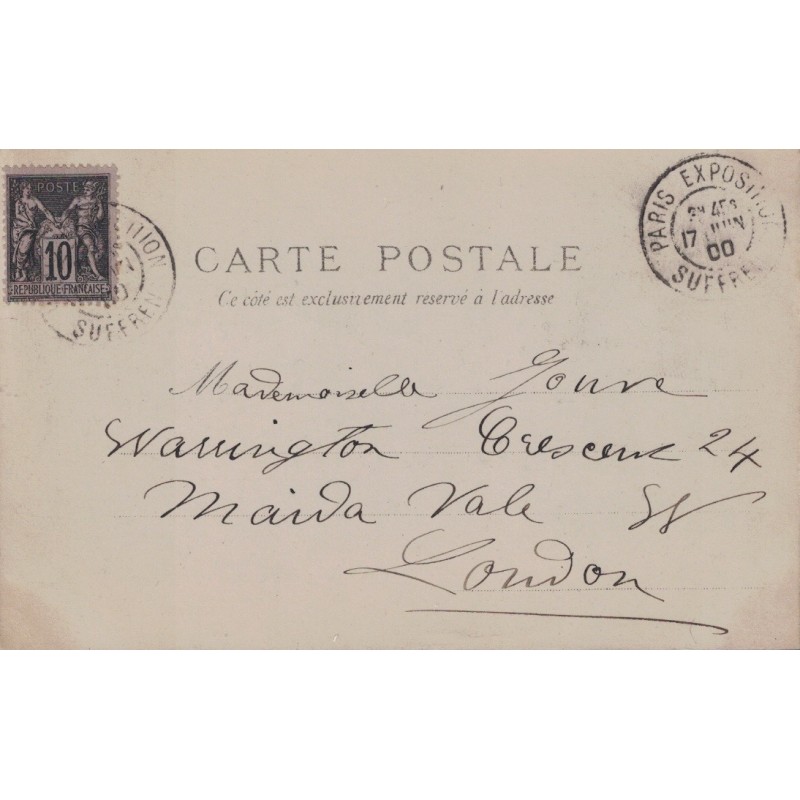 POSTE
10
RÉPUBLIQUE FRANÇAISE
SUFFREN
PARIS EXPOSITION
4E
17 JUIN
00
SUFFREN
CARTE POSTALE
Ce côté est exclusivement reservé à l'adresse
Mademoiselle Jouve
Warrington Crescent 24
Maida Vale W
London